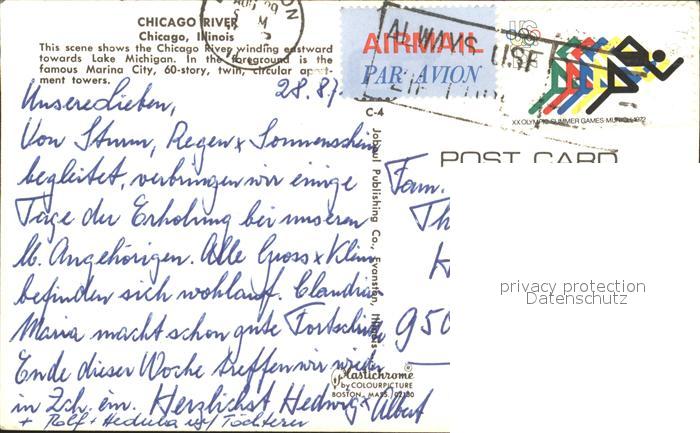 CHICAGO RIVER
Chicago, Illinois
This scene shows the Chicago River winding eastward
towards Lake Michigan. In the foreground is the
famous Marina City, 60-story, twin, circular apart-
ment towers.
AUG 29
AIRMAIL
PAR AVION
ALWAYS USE
ZIP CODE
US
XX OLYMPIC SUMMER GAMES MUNICH 1972
C-4
POST CARD
Joboul Publishing Co., Evanston, Illinois
28.8.
Unsere Lieben,
Von Sturm, Regen & Sonnenschein
begleitet, verbringen wir einige
Tage der Erholung bei unseren
lb. Angehörigen. Alle Gross & Klein
befinden sich wohlauf. Claudia
Maria macht schon gute Fortschritte
Ende dieser Woche treffen wir wieder
in Zch. ein. Herzlichst Hedwig & Albert
+ Rolf + Töchter
Fam.
Th
950
Plastichrome
by COLOURPICTURE
BOSTON, MASS. 02130
privacy protection
Datenschutz